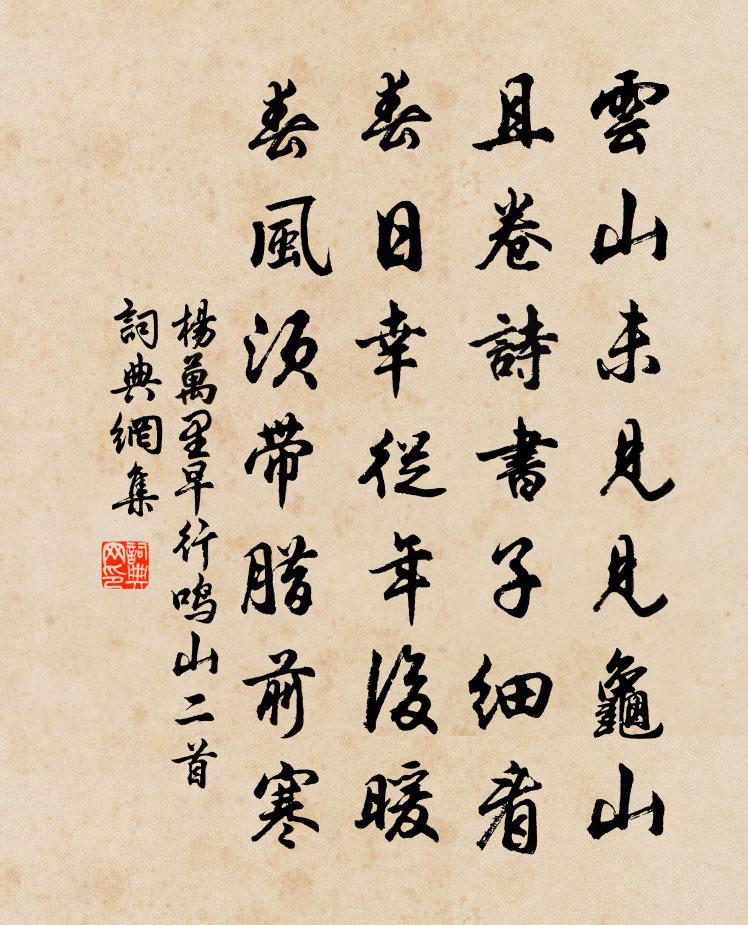 雲山未見見龜山
且卷詩書子細看
春日幸從年後暖
春風須帶腊前寒
楊萬里早行鳴山二首
詞典網集
詞典網印